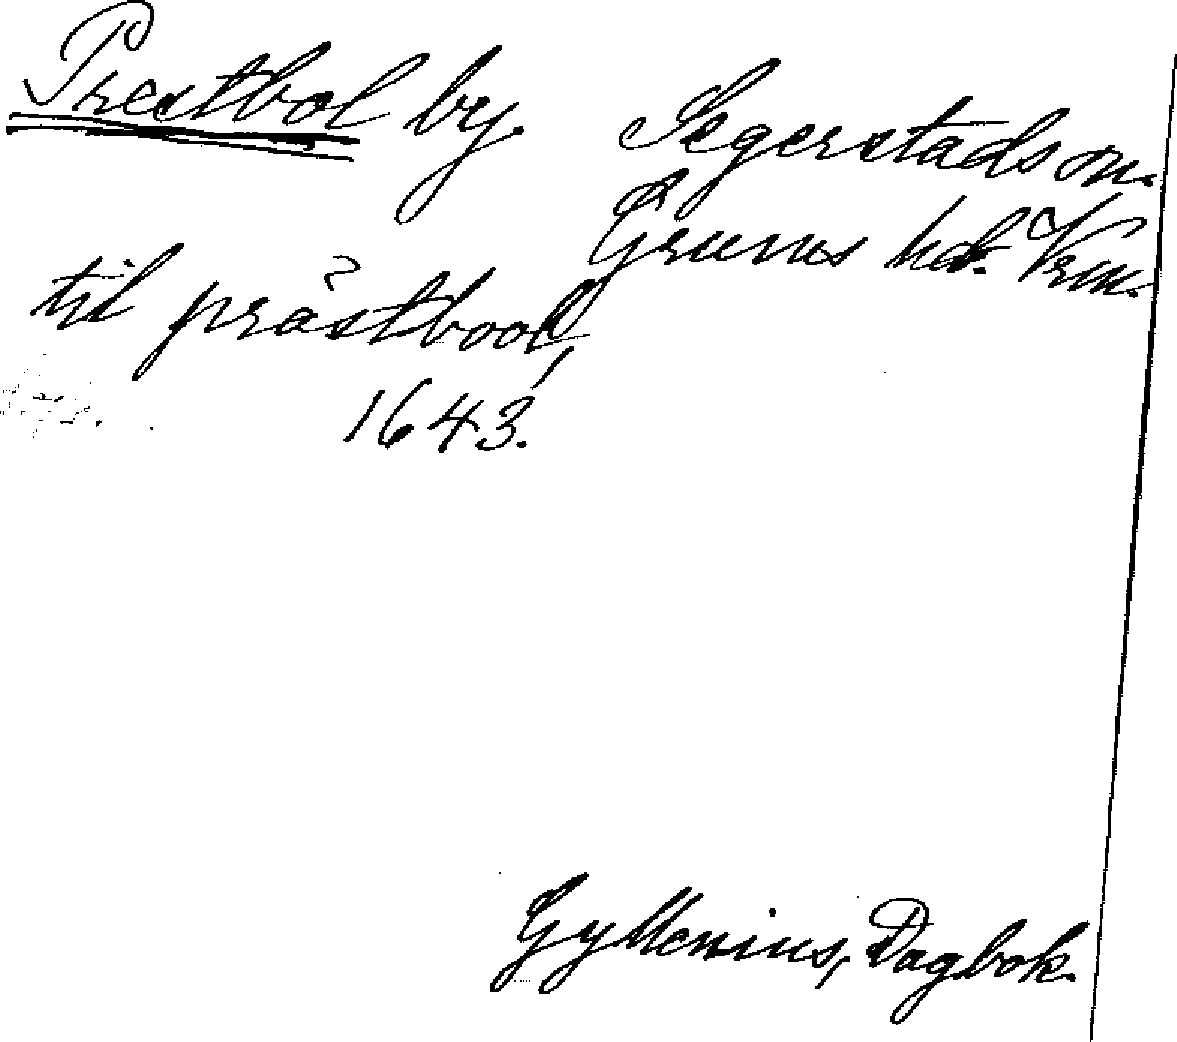 Prestbol by. Segerstads sn.
Grums hd. Vrm.
til prästbool,
1643.
Gyllenius, Dagbok.